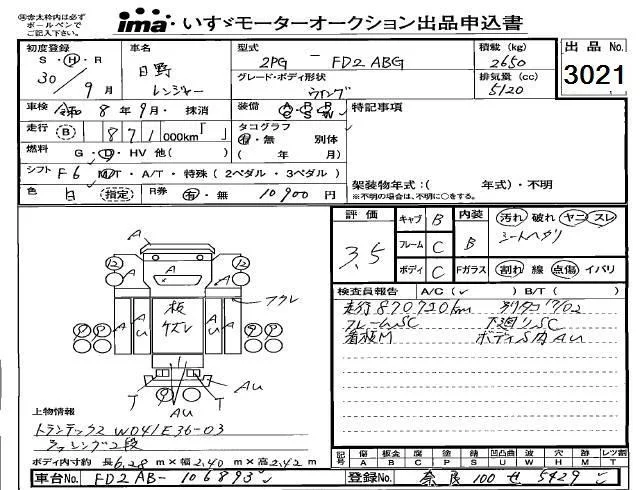 ㊟赤太枠内は必ず
ボールペンで
ご記入下さい。
ima いすゞモーターオークション出品申込書
初度登録 車名 型式 積載(kg) 出品No.
S・H・R 日野 2PG － FD2ABG 2650
30年9月 レンジャー グレード・ボディ形状 排気量(cc) 3021
ウイング 5120
車検 令和8年9月・抹消 装備 A P R C S W 特記事項
走行 B 871 000km「 」 タコグラフ
有・無 別体
燃料 G・D・HV 他( ) ( 年 月)
シフト F6 M/T・A/T・特殊(2ペダル・3ペダル)
色 白 指定 R券 有・無 10900円
架装物年式:( 年式)・不明
※不明の場合は、不明に○をする。
評価 キャブ B 内装 汚れ 破れ ヤニ スレ
3.5 フレーム C B シートヘタリ
ボディ C Fガラス 割れ 線 点傷 イバリ
検査員報告 A/C( ✓ ) B/T( )
走行870720km 別タコ17/02
フレームSC 下廻りSC
看板M ボディS内AU
A
12 A A 12
A
A AU 板ズレ A AU A アクレ
P P
T T AU
AU
上物情報
トランテックス W041E36-03
ラッシング2段
ボディ内寸約 長6.28m×幅2.40m×高2.42m
記号 傷A 板金B 腐C 塗P 錆S 凹凸曲U 波W 穴H 跡M レツ割T
車台No. FD2AB-106893 登録No. 奈良100せ5429